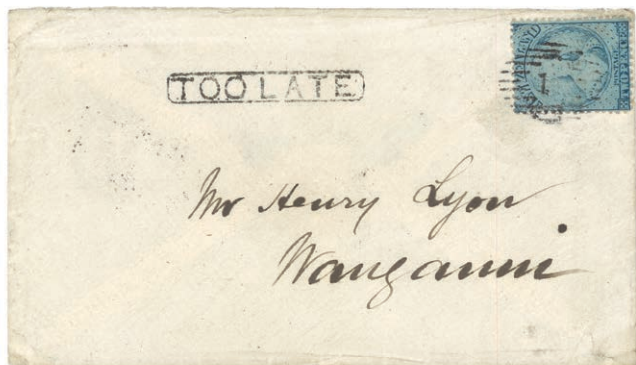 TOO LATE
1
Mr Henry Lyon
Wanganui